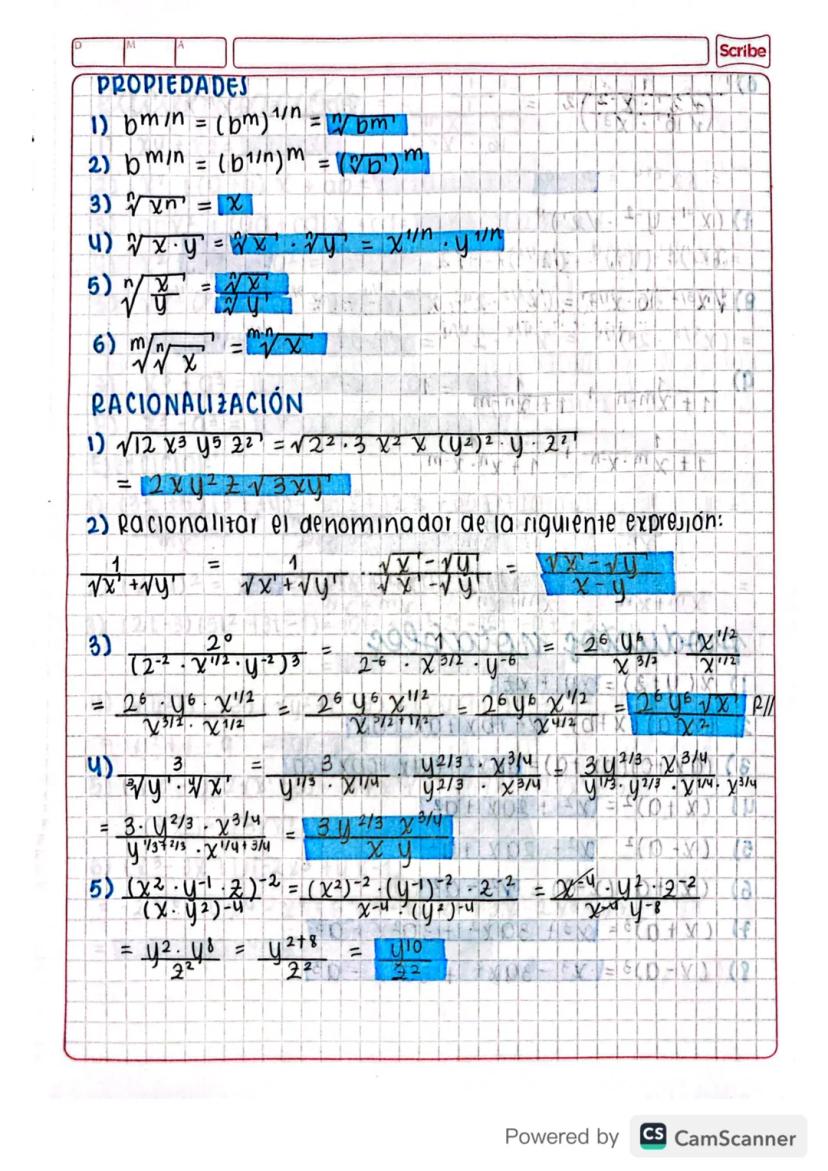 D M A
Scribe
PROPIEDADES
1) b^m/n = (b^m)^1/n = ⁿ√b^m
2) b^m/n = (b^1/n)^m = (ⁿ√b)^m
3) ⁿ√xⁿ = x
4) ⁿ√x · y = ⁿ√x · ⁿ√y = x^1/n · y^1/n
5) ⁿ√(x/y) = ⁿ√x / ⁿ√y
6) ᵐ√ⁿ√x = ᵐ·ⁿ√x
RACIONALIZACIÓN
1) √12 x³ y⁵ z² = √2² · 3 x² x (y²)² · y · z²
= 2xy² z √3xy
2) Racionalizar el denominador de la siguiente expresión:
1/(√x + √y) = 1/(√x + √y) · (√x - √y)/(√x - √y) = (√x - √y)/(x - y)
3) 2⁰/(2⁻² · x^1/2 · y⁻²)³ = 1/(2⁻⁶ · x^3/2 · y⁻⁶) = 2⁶ y⁶/x^3/2 · x^1/2/x^1/2
= (2⁶ · y⁶ · x^1/2)/(x^3/2 · x^1/2) = (2⁶ y⁶ x^1/2)/(x^3/2+1/2) = (2⁶ y⁶ x^1/2)/(x^4/2) = (2⁶ y⁶ √x)/x² R//
4) 3/(³√y · ⁴√x) = 3/(y^1/3 · x^1/4) · (y^2/3 · x^3/4)/(y^2/3 · x^3/4) = (3y^2/3 · x^3/4)/(y^1/3 · y^2/3 · x^1/4 · x^3/4)
= (3 · y^2/3 · x^3/4)/(y^1/3+2/3 · x^1/4+3/4) = (3y^2/3 x^3/4)/(x y)
5) (x² · y⁻¹ · z)⁻²/(x · y²)⁻⁴ = ((x²)⁻² · (y⁻¹)⁻² · z⁻²)/(x⁻⁴ · (y²)⁻⁴) = (x⁻⁴ · y² · z⁻²)/(x⁻⁴ y⁻⁸)
= (y² · y⁸)/z² = y^2+8/z² = y¹⁰/z²
Powered by CS CamScanner